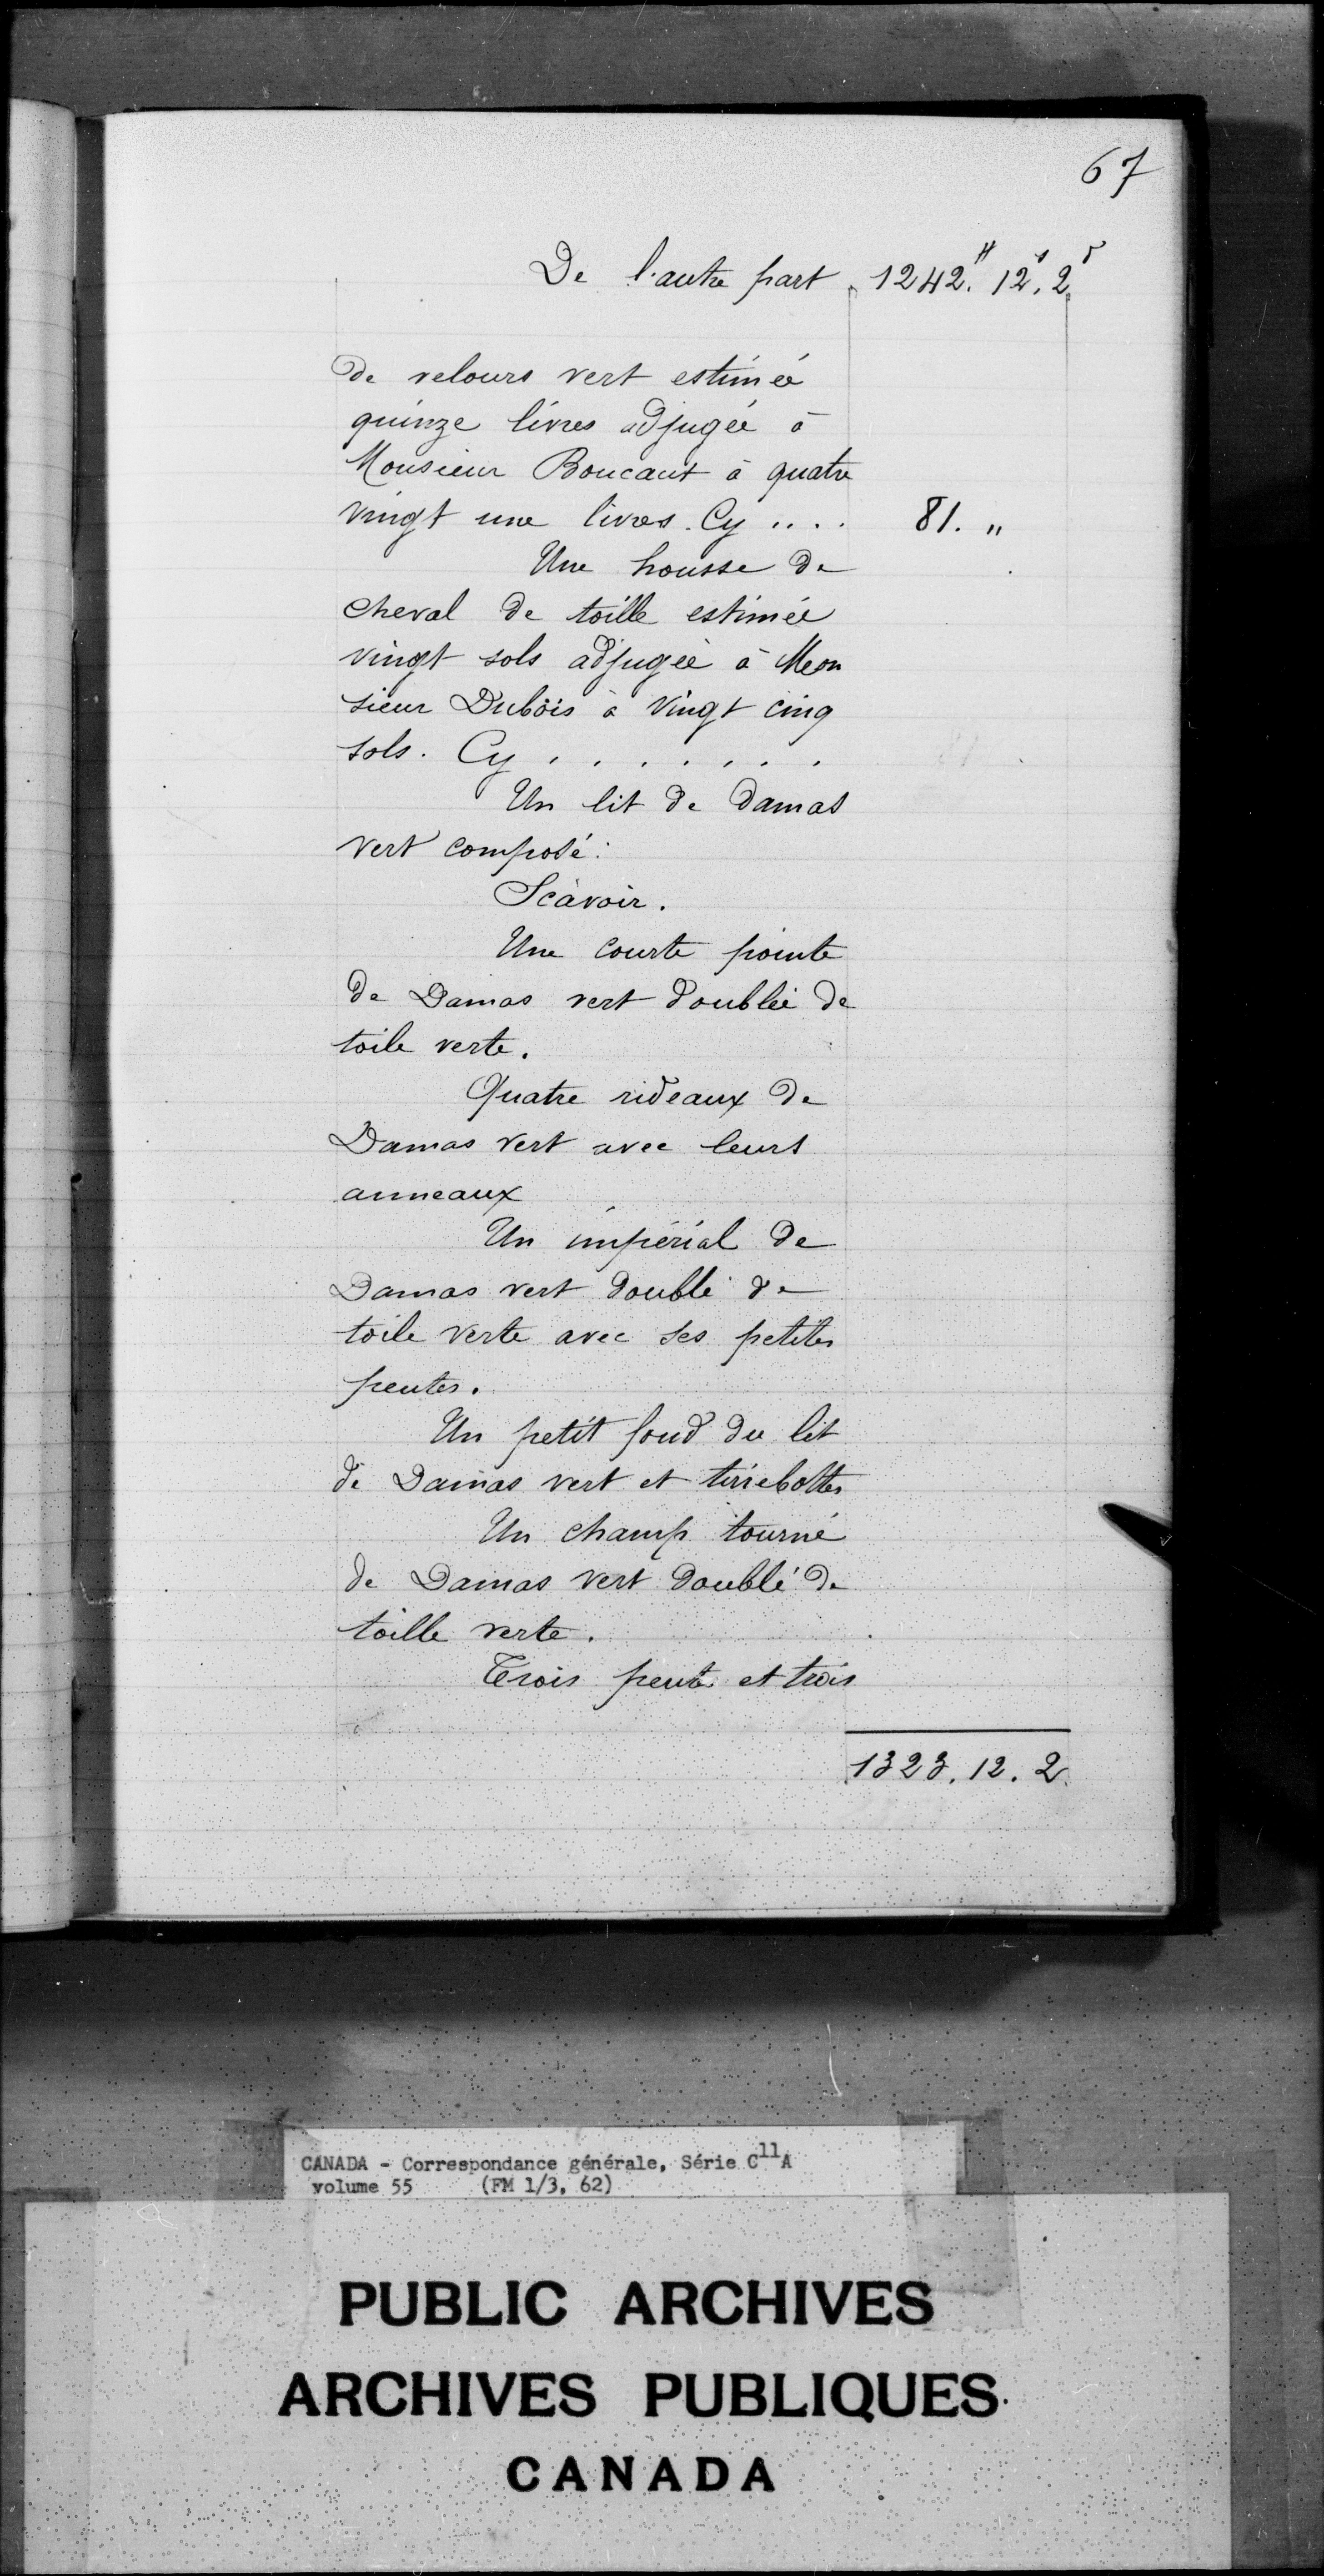 67
De l'autre part . 1242.# 12.s 2.d
de velours vert estimée
quinze livres adjugée à
Monsieur Boucaut à quatre
vingt une livres. Cy .... 81. "
Une housse de
cheval de toille estimée
vingt sols adjugée à Mon
sieur Dubois à vingt cinq
sols. Cy . . . . . . .
Un lit de damas
vert composé:
Scavoir.
Une courte pointe
de Damas vert doublée de
toile verte.
Quatre rideaux de
Damas vert avec leurs
anneaux
Un impérial de
Damas vert doublé de
toile verte avec ses petites
pentes.
Un petit fond du lit
de Damas vert et tirrebottes
Un champ tourné
de Damas vert doublé de
toille verte.
Trois pente et trois
1323. 12. 2.
CANADA - Correspondance générale, Série C11A
volume 55 (FM 1/3, 62)
PUBLIC ARCHIVES
ARCHIVES PUBLIQUES
CANADA